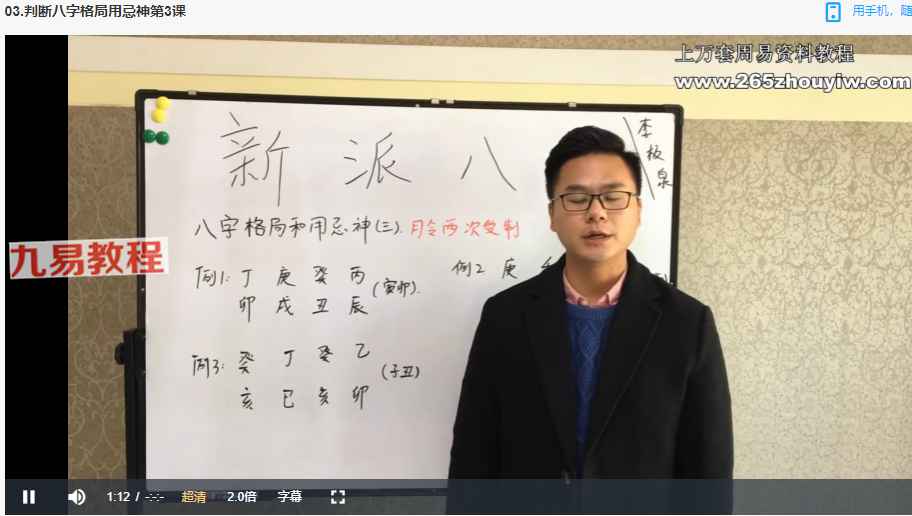 03.判断八字格局用忌神第3课
用手机，随
上万套周易资料教程
www.265zhouyiw.com
新派八
李
泉
八字格局和用忌神(三).月令两次受制
九易教程
例1: 丁 庚 癸 丙
卯 戌 丑 辰 (寅卯).
例2 庚
例3: 癸 丁 癸 乙
亥 巳 亥 卯 (子丑)
1:12 / -:-:-
超清
2.0倍
字幕